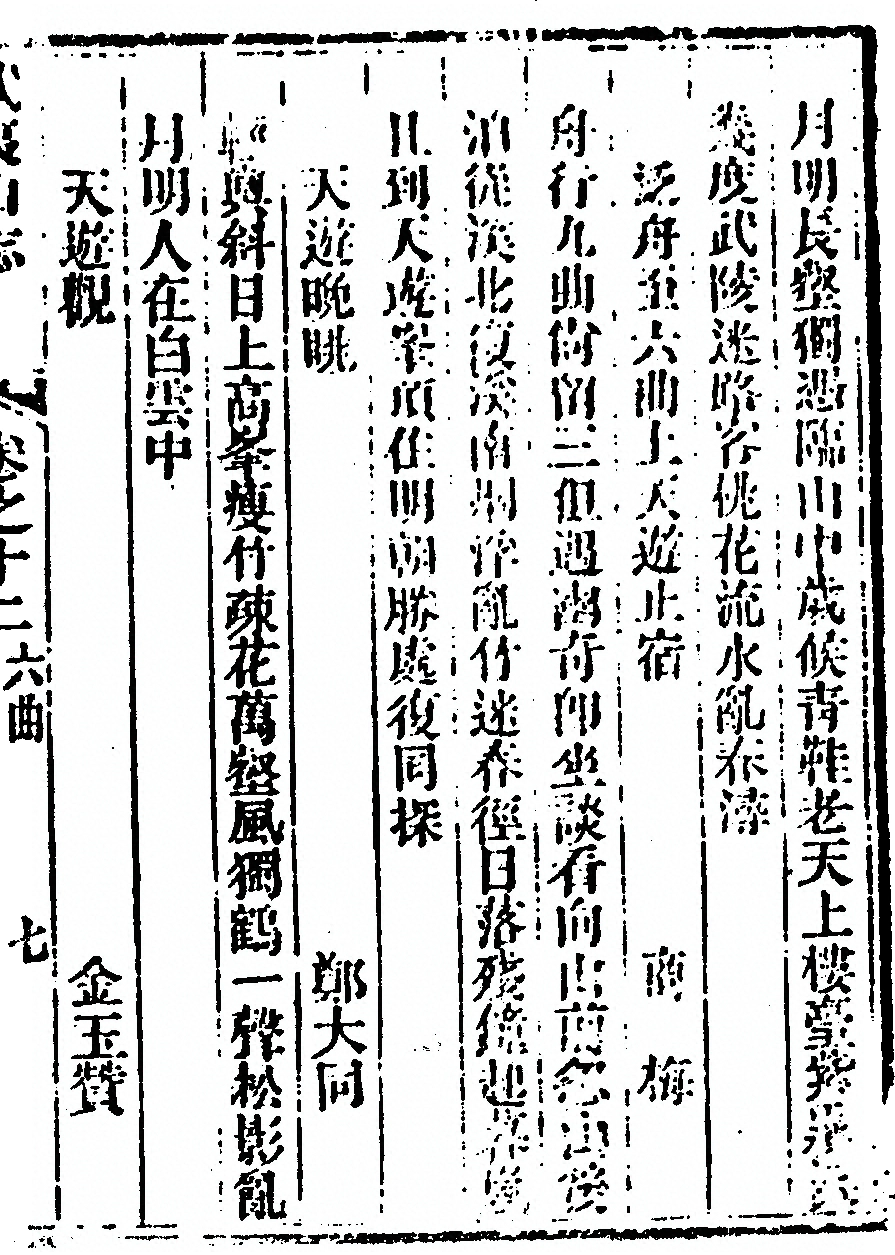 月明長壑獨憑臨山中歲候青鞋老天上樓臺
幾度武陵迷路客桃花流水亂春潯
泛舟至六曲上天遊止宿 商梅
舟行九曲尚留三但遇幽奇仰坐談看向山前
泊從溪北復溪南烟 亂竹迷春徑日落殘鐘起
且到天遊峯頂住明朝勝處復同探
天遊晚眺 鄭大同
輿斜日上高峯瘦竹疎花萬壑風獨鶴一聲松影亂
月明人在白雲中
天遊觀 金玉贊
武夷山志 卷之十二 六曲 七